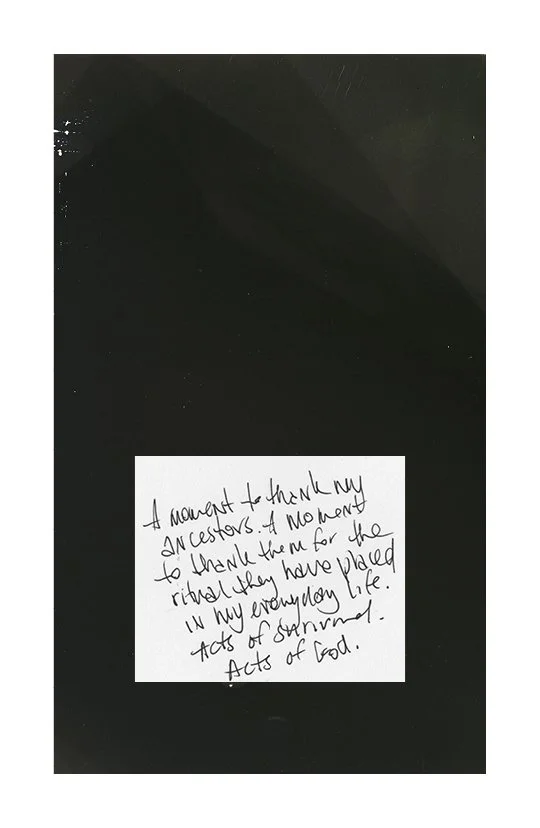 A moment to thank my
ancestors. A moment
to thank them for the
ritual they have placed
in my everyday life.
Acts of survival.
Acts of God.